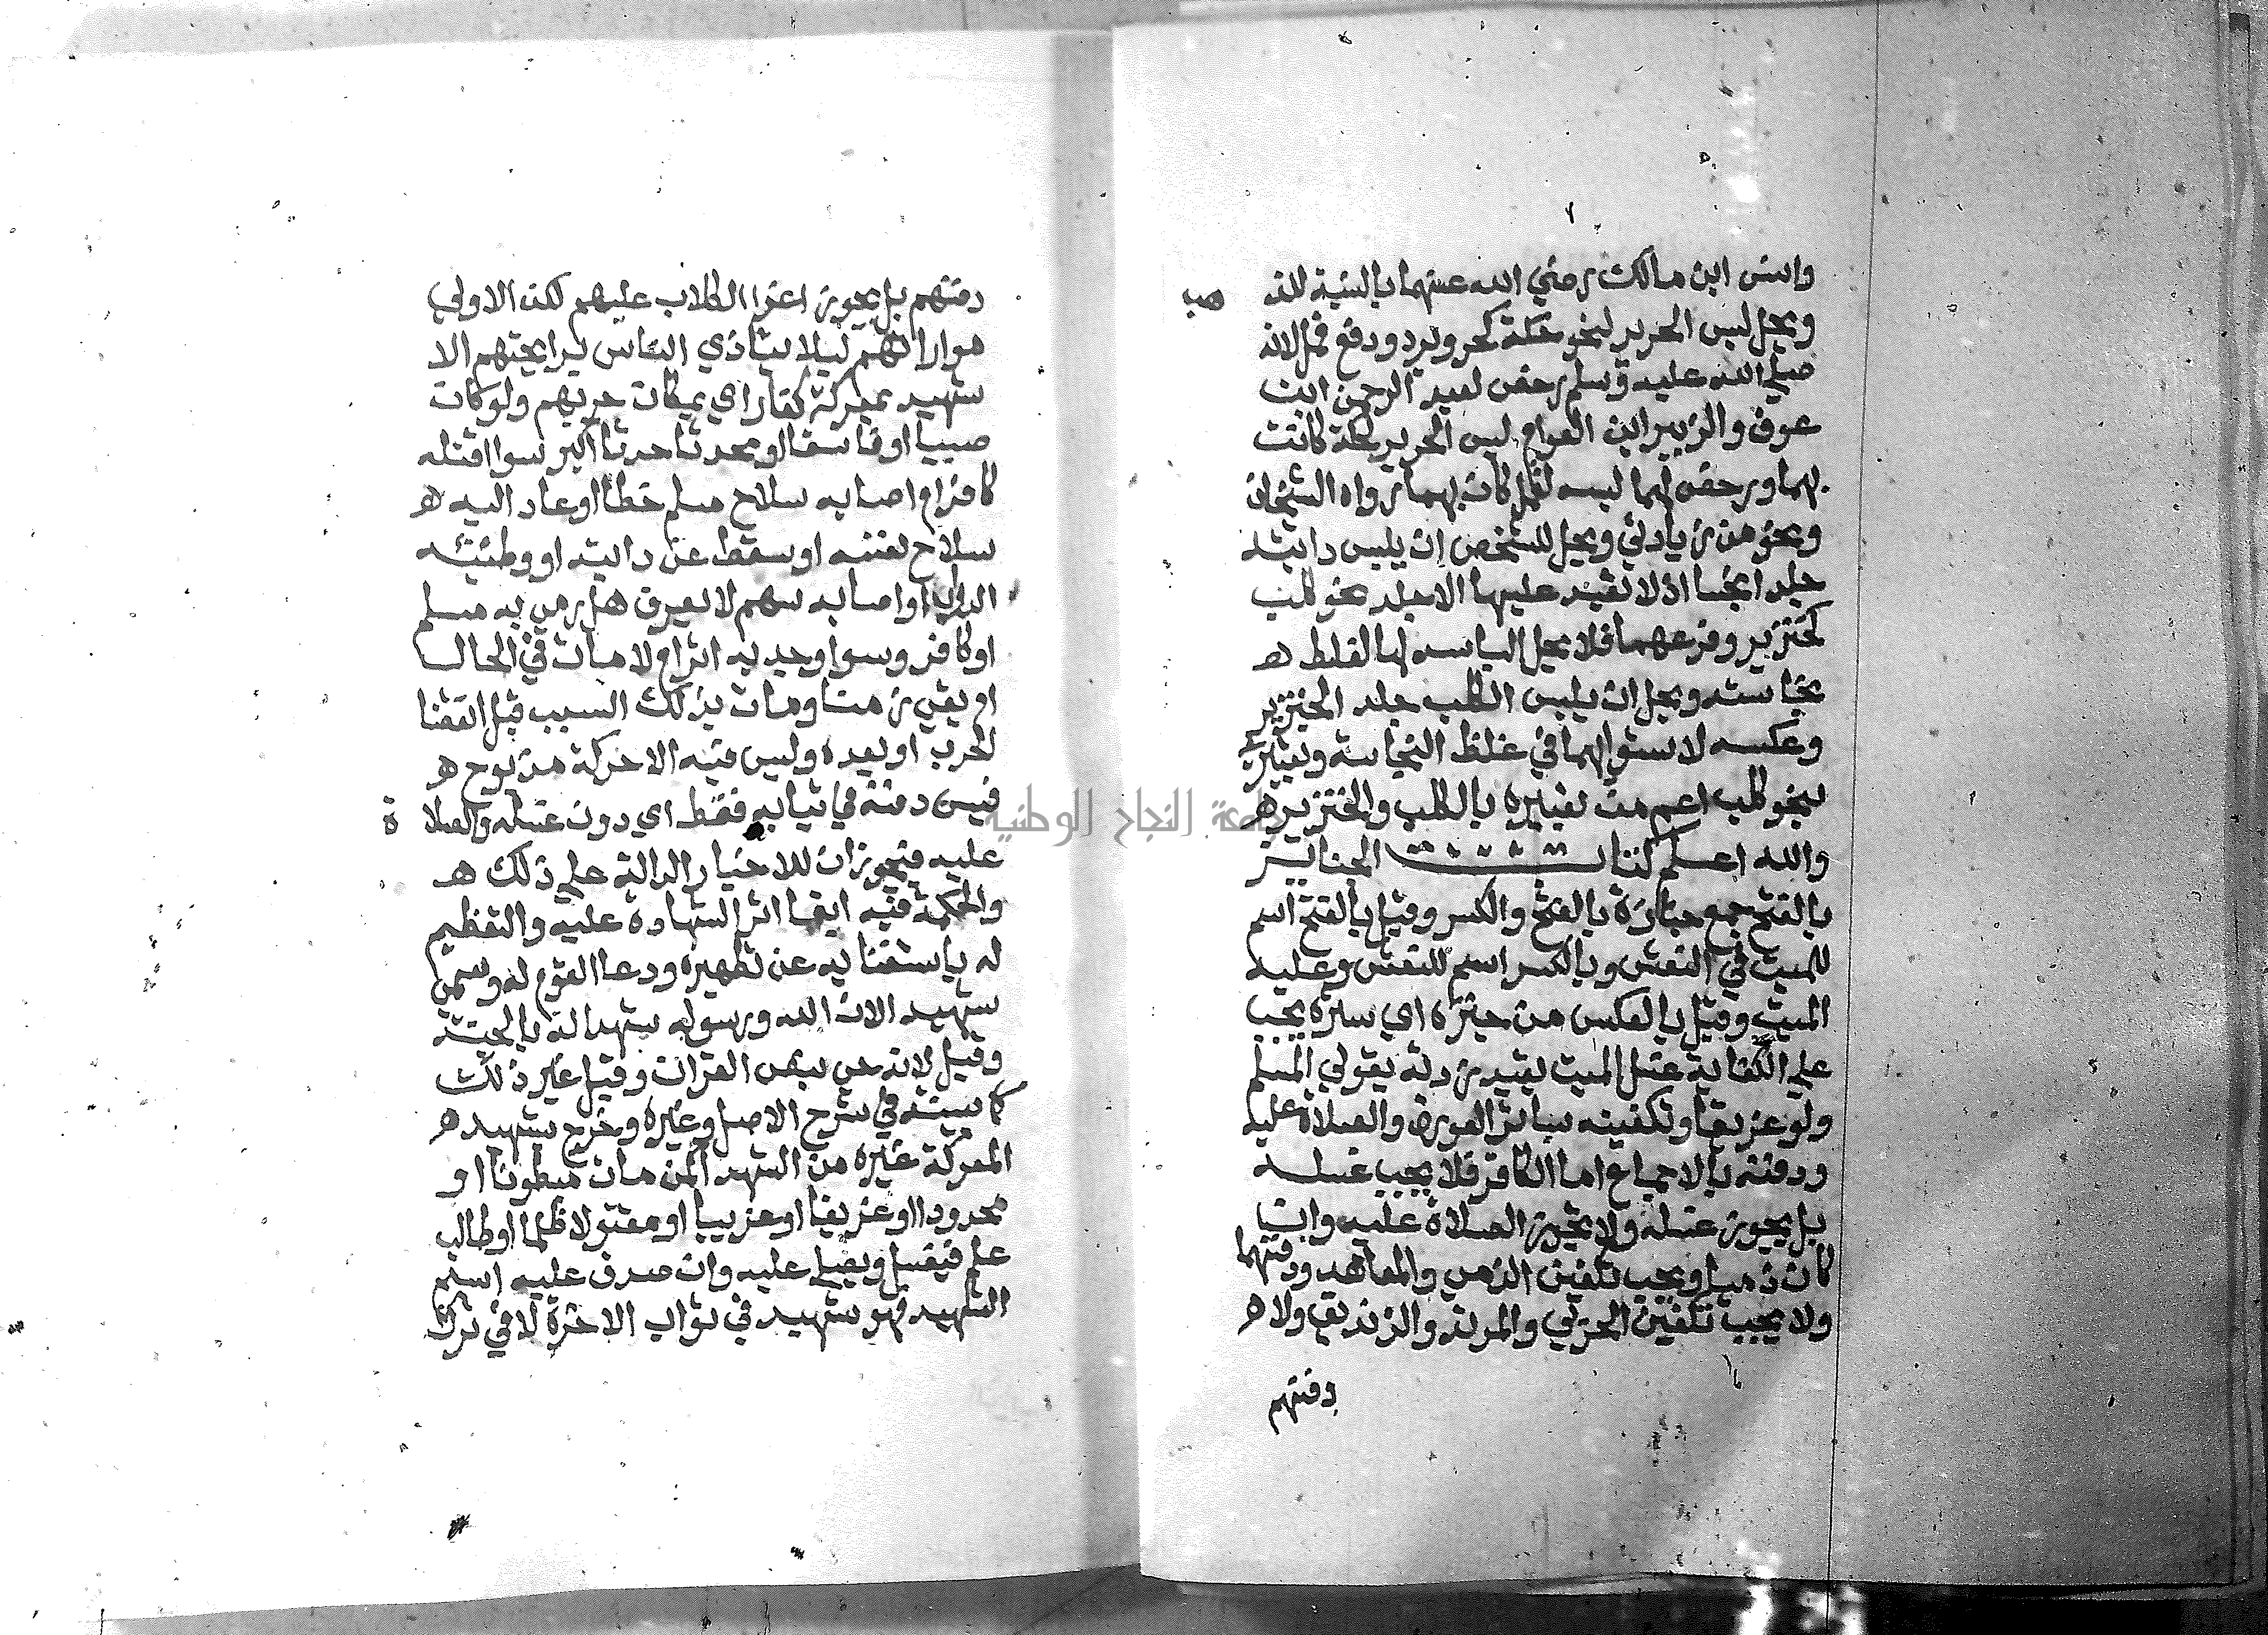 وانس ابن مالك رضي الله عنهما بالنية للذهب
ويحل لبس الحرير لنحو حكة كحر وبرد ودفع قمل لانه
صلي الله عليه وسلم رخص لعبد الرحمن ابن
عوف والزبير ابن العوام لبس الحرير لحكة كانت
بهما ورخص لهما لبسه لقمل كان بهما رواه الشيخان
ونحو من زيادتي ويحل للشخص ان يلبس دابته
جلدا نجسا اذ لا تعبد عليها الا جلد نحو كلب
كخنزير وفرعهما فلا يحل الباسه لها لغلظ ه
نجاسته ويحل ان يلبس الكلب جلد الخنزير
وعكسه لاستوائهما في غلظ النجاسة وتعبيري
بنحو كلب اعم من تعبيره بالكلب والخنزير ه
والله اعلم كتاب الجنايز
بالفتح جمع جنازة بالفتح والكسر وقيل بالفتح اسم
للميت في النعش وبالكسر اسم للنعش وعليه
الميت وقيل بالعكس من جنزه اي ستره يجب
علي الكفاية غسل الميت بقيد زدته بقولي المسلم
ولو غريقا وتكفينه بساتر العورة والصلاة عليه
ودفنه بالاجماع اما الكافر فلا يجب غسله
بل يجوز غسله ولا يجوز الصلاة عليه وان
كان ذميا ويجب تكفين الذمي والمعاهد ودفنهما
ولا يجب تكفين الحربي والمرتد والزنديق ولا ه
دفنهم
دفنهم بل يجوز اغرا الكلاب عليهم لكن الاولي
مواراتهم ليلا يتاذي الناس برايحتهم الا
شهيد بمعركة كفار اي بمكان حربهم ولو كان
صبيا او فاسقا او محدثا حدثا اكبر سوا قتله
كافر ام اصابه سلاح مسلم خطا او عاد اليه ه
سلاح نفسه او سقط عن دابته او وطئته
الدواب او اصابه سهم لا يعرف هل رمي به مسلم
او كافر وسوا وجد به اثر ام لا مات في الحال
او بقي زمنا ومات بذلك السبب قبل انقضا
الحرب او بعده وليس فيه الا حركة مذبوح ه
فيسن دفنه في ثيابه فقط اي دون غسله والصلاة
عليه فيجوزان للاخبار الدالة علي ذلك ه
والحكمة فيه ابقا اثر الشهادة عليه والتعظيم
له باستغنايه عن تطهيره ودعا القوم له وسمي
شهيد الان الله ورسوله شهدا له بالجنة
وقيل لانه حي بنص القران وقيل غير ذلك
كما بينته في شرح الاصل وغيره وخرج بشهيد ه
المعركة غيره من الشهدا كمن مات مبطونا او
محدودا او غريقا او غريبا او مقتولا ظلما او طالب
علم فيغسل ويصلي عليه وان صدق عليه اسم
الشهيد فهو شهيد في ثواب الاخرة لا في ترك
جامعة النجاح الوطنية